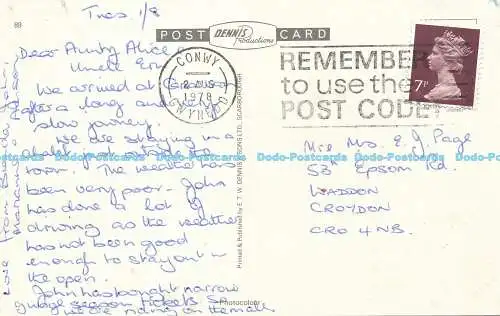 89
Tues. 1/8
POST CARD
DENNIS
Productions
Dear Aunty Alice &
Uncle Ern
We arrived at
after a long and very
slow journey.
We are staying in a
chalet just outside the
town. The weather has
been very poor. John
has done a lot of
driving as the weather
has not been good
enough to stay out in
the open.
John has bought narrow
guage season tickets so
we are riding on them all
Love from
CONWY
1978
GWYNEDD
REMEMBER
to use the
POST CODE
7P
Mr & Mrs. E. J. Page
53A Epsom Rd.
WADDON
CROYDON
CRO 4NB.
Printed & Published by E.T.W. DENNIS & SONS LTD., SCARBOROUGH
Photocolour
Dodo-Postcards Dodo-Postcards Dodo-Postcards Dodo-Postcards Dodo-Postcards Dodo-Postcards